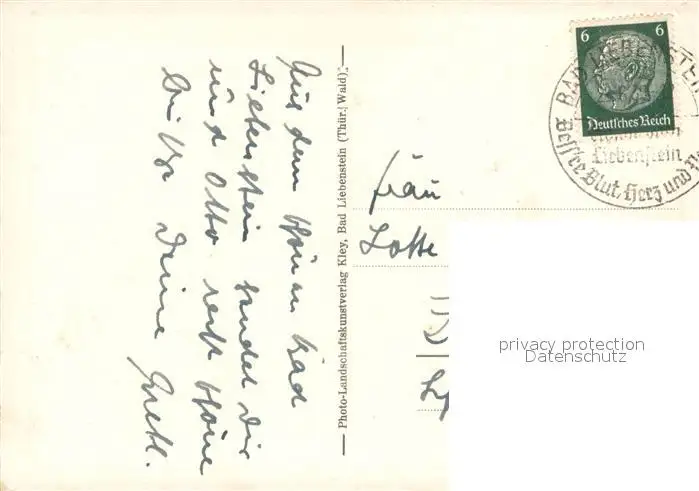 Aus dem schönen Bad
Liebenstein sendet Dir
und Otto recht schöne
Deine
Gretl.
— Photo-Landschaftskunstverlag Kley, Bad Liebenstein (Thür. Wald) —
6 6
Deutsches Reich
BAD LIEBENSTEIN
Liebenstein
Bess're Blut, Herz und
Frau
Lotte
privacy protection
Datenschutz